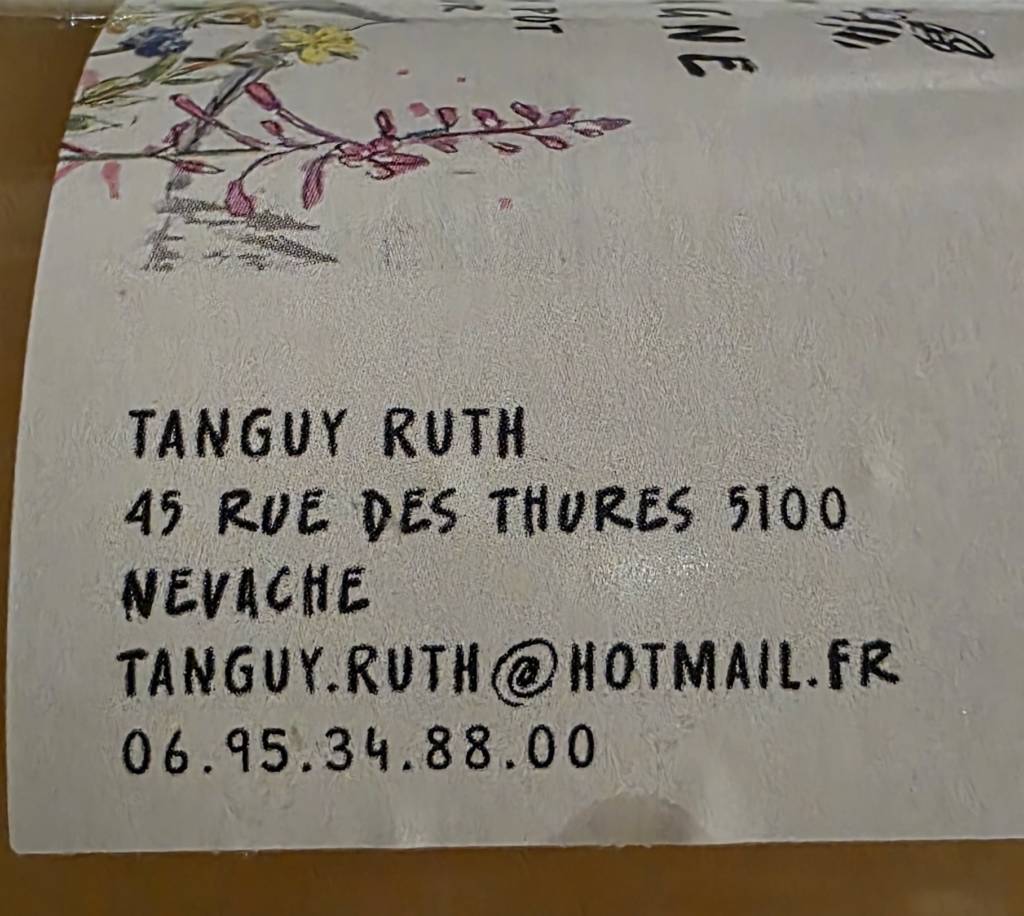 POT
R
GNE
TANGUY RUTH
45 RUE DES THURES 5100
NEVACHE
TANGUY.RUTH@HOTMAIL.FR
06.95.34.88.00